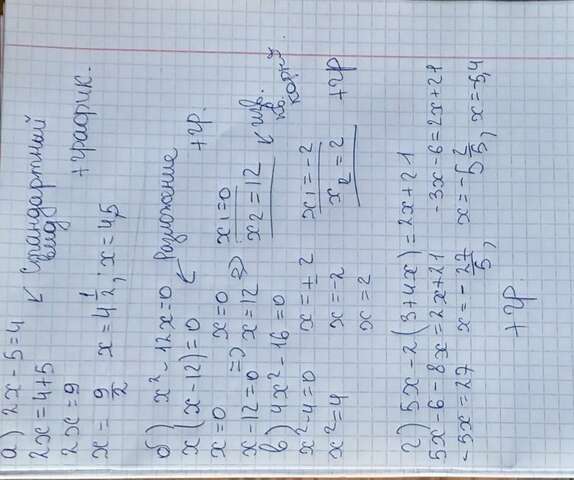 а) 2x - 5 = 4
2x = 4+5 ↙ Стандартный вид
2x = 9
x = 9/2 x = 4 1/2; x = 4,5 + график.
б) x² - 12x = 0
x(x - 12) = 0 ↙ Разложение
x = 0 x = 0 x1 = 0 + гр.
x - 12 = 0 => x = 12 => x2 = 12
в) 4x² - 16 = 0 ↙ изв. кв. корня.
x² - 4 = 0 x = ± 2 x1 = -2
x² = 4 x = -2 x2 = 2 + гр
x = 2
г) 5x - 2(3+4x) = 2x + 21
5x - 6 - 8x = 2x + 21 -3x - 6 = 2x + 21
-5x = 27 x = -27/5, x = -5 2/5, x = -5,4
+ гр.